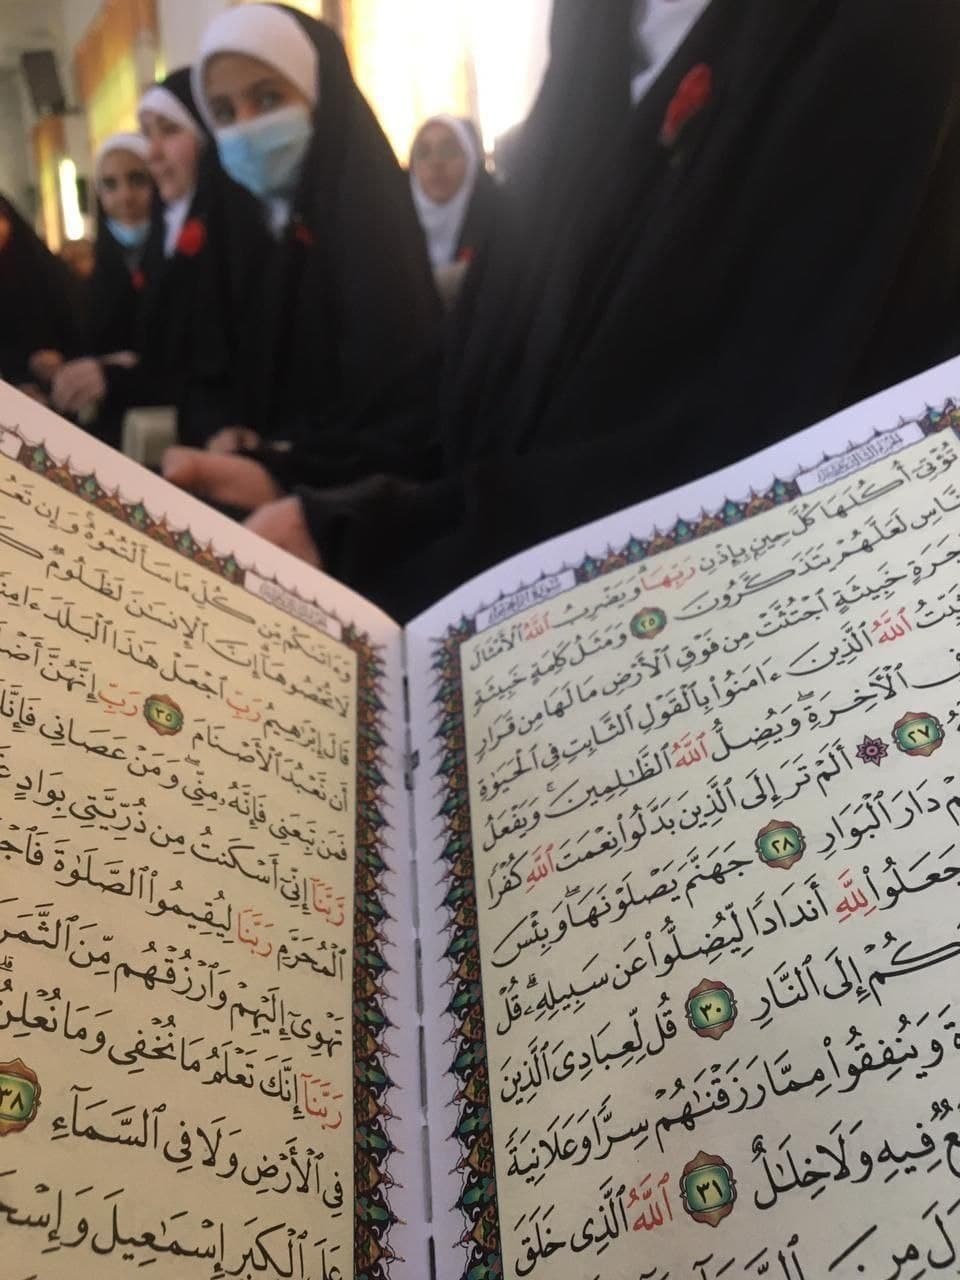 تُؤْتِىٓ أُكُلَهَا كُلَّ حِينٍۭ بِإِذْنِ رَبِّهَا ۗ وَيَضْرِبُ ٱللَّهُ ٱلْأَمْثَالَ
لَعَلَّهُمْ يَتَذَكَّرُونَ ٢٥ وَمَثَلُ كَلِمَةٍ خَبِيثَةٍ
خَبِيثَةٍ ٱجْتُثَّتْ مِن فَوْقِ ٱلْأَرْضِ مَا لَهَا مِن قَرَارٍ
ٱللَّهُ ٱلَّذِينَ ءَامَنُوا۟ بِٱلْقَوْلِ ٱلثَّابِتِ فِى ٱلْحَيَوٰةِ
ٱلْـَٔاخِرَةِ ۖ وَيُضِلُّ ٱللَّهُ ٱلظَّـٰلِمِينَ ۚ وَيَفْعَلُ
٢٧ ۞ أَلَمْ تَرَ إِلَى ٱلَّذِينَ بَدَّلُوا۟ نِعْمَتَ ٱللَّهِ كُفْرًا
دَارَ ٱلْبَوَارِ ٢٨ جَهَنَّمَ يَصْلَوْنَهَا ۖ وَبِئْسَ
جَعَلُوا۟ لِلَّهِ أَندَادًا لِّيُضِلُّوا۟ عَن سَبِيلِهِۦ ۗ قُلْ
إِلَى ٱلنَّارِ ٣٠ قُل لِّعِبَادِىَ ٱلَّذِينَ
وَيُنفِقُوا۟ مِمَّا رَزَقْنَـٰهُمْ سِرًّا وَعَلَانِيَةً
فِيهِ وَلَا خِلَـٰلٌ ٣١ ٱللَّهُ ٱلَّذِى خَلَقَ
وَءَاتَىٰكُم مِّن كُلِّ مَا سَأَلْتُمُوهُ ۚ وَإِن
لَا تُحْصُوهَآ ۗ إِنَّ ٱلْإِنسَـٰنَ لَظَلُومٌ
قَالَ إِبْرَٰهِيمُ رَبِّ ٱجْعَلْ هَـٰذَا ٱلْبَلَدَ
أَن نَّعْبُدَ ٱلْأَصْنَامَ ٣٥ رَبِّ إِنَّهُنَّ
فَمَن تَبِعَنِى فَإِنَّهُۥ مِنِّى ۖ وَمَنْ عَصَانِى
رَّبَّنَآ إِنِّىٓ أَسْكَنتُ مِن ذُرِّيَّتِى بِوَادٍ
ٱلْمُحَرَّمِ رَبَّنَا لِيُقِيمُوا۟ ٱلصَّلَوٰةَ
تَهْوِىٓ إِلَيْهِمْ وَٱرْزُقْهُم مِّنَ
رَبَّنَآ إِنَّكَ تَعْلَمُ مَا نُخْفِى وَمَا نُعْلِنُ
فِى ٱلْأَرْضِ وَلَا فِى ٱلسَّمَآءِ ٣٨
عَلَى ٱلْكِبَرِ إِسْمَـٰعِيلَ